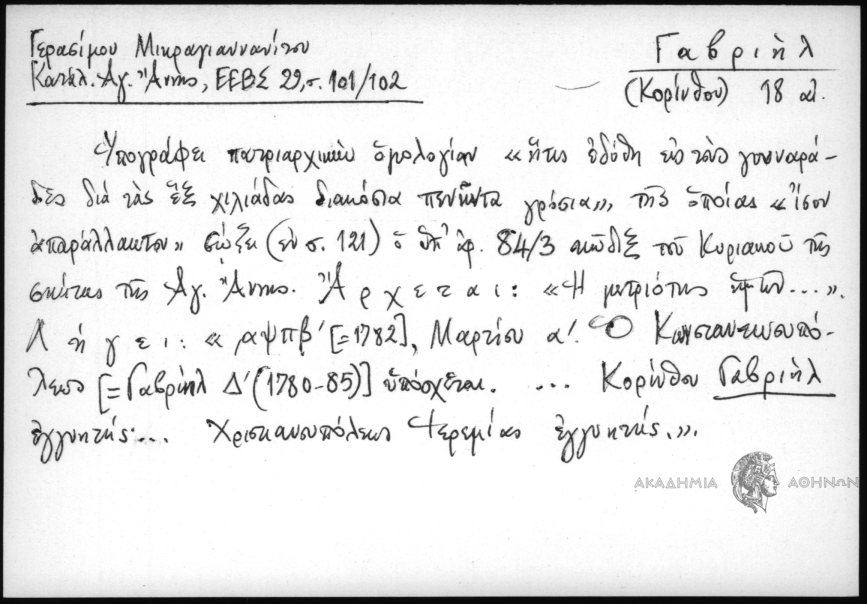 Γερασίμου Μικραγιαννανίτου
Κατάλ. Ἁγ. Ἄννης, ΕΕΒΣ 29, σ. 101/102
Γαβριὴλ
(Κορίνθου) 18 αἰ.
Ὑπογράφει πατριαρχικὴν ὁμολογίαν «ἥτις ἐδόθη εἰς τοὺς γουναρά-
δες διὰ τὰς ἓξ χιλιάδας διακόσια πενῆντα γρόσια», τῆς ὁποίας «ἴσον
ἀπαράλλακτον» σώζει (ἐν σ. 121) ὁ ὑπ' ἀρ. 84/3 κώδιξ τοῦ Κυριακοῦ τῆς
σκήτεως τῆς Ἁγ. Ἄννης. Ἄρχεται: «Ἡ μετριότης ἡμῶν...».
Λήγει: «͵αψπβ' [=1782], Μαρτίου α'. Ὁ Κωνσταντινουπό-
λεως [=Γαβριὴλ Δ' (1780-85)] ὑπόσχεται. ... Κορίνθου Γαβριὴλ
ἐγγυητής... Χριστιανουπόλεως Ἱερεμίας ἐγγυητής.».
ΑΚΑΔΗΜΙΑ ΑΘΗΝΩΝ